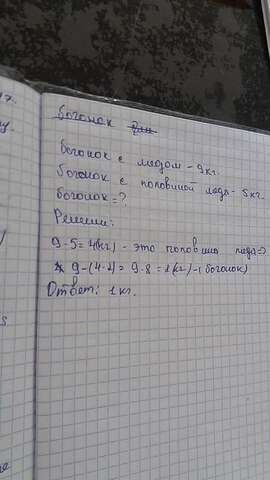 богонок
богонок с медом - 9 кг.
богонок с половиной меда - 5 кг.
богонок = ?
Решение:
9 - 5 = 4(кг) - это половина меда =>
9 - (4·2) = 9 - 8 = 1(кг) - (богонок)
Ответ: 1 кг.